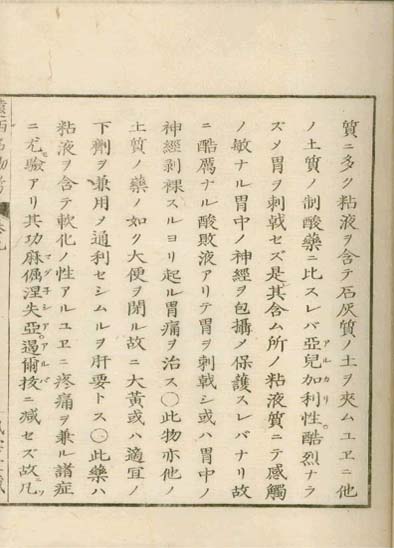 質ニ多ク粘液ヲ含テ石灰質ノ土ヲ夾ムユヱニ他
ノ土質ノ制酸藥ニ比スレバ亞兒加利性酷烈ナラ
アルカリ
ズメ胃ヲ刺戟セズ是其含ム所ノ粘液質ニテ感觸
ノ敏ナル胃中ノ神經ヲ包攝メ保護スレバナリ故
ニ酷厲ナル酸敗液アリテ胃ヲ刺戟シ或ハ胃中ノ
神經剥裸スルヨリ起ル胃痛ヲ治ス〇此物亦他ノ
土質ノ藥ノ如ク大便ヲ閉ル故ニ大黃或ハ適宜ノ
下劑ヲ兼用メ通利セシムルヲ肝要トス〇此藥ハ
粘液ヲ含テ軟化ノ性アルユヱニ疼痛ヲ兼ル諸症
ニ尤驗アリ其功麻倔涅失亞遏爾抜ニ減セズ故凡
マグネシアアルバ
遠西名物考